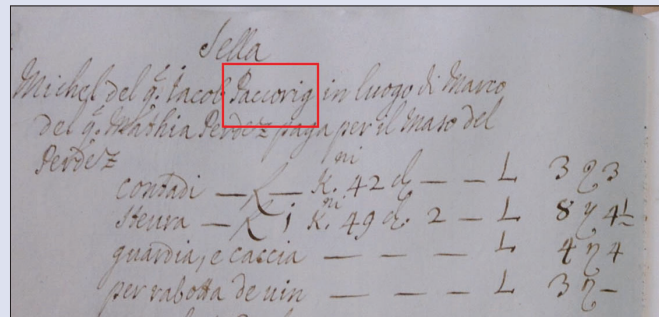 Sella
Michel del q. Iacob Paccovig in luogo di Marco
del q. Mathia Perdez paga per il Maso del
Perdez
contadi — — K.ni 42 d — — L 3 3
Steura — 1 K.ni 49 d 2 — L 8 4
guardia, e caccia — — — — L 4 4
per rabotta de uin — — — — L 3 —